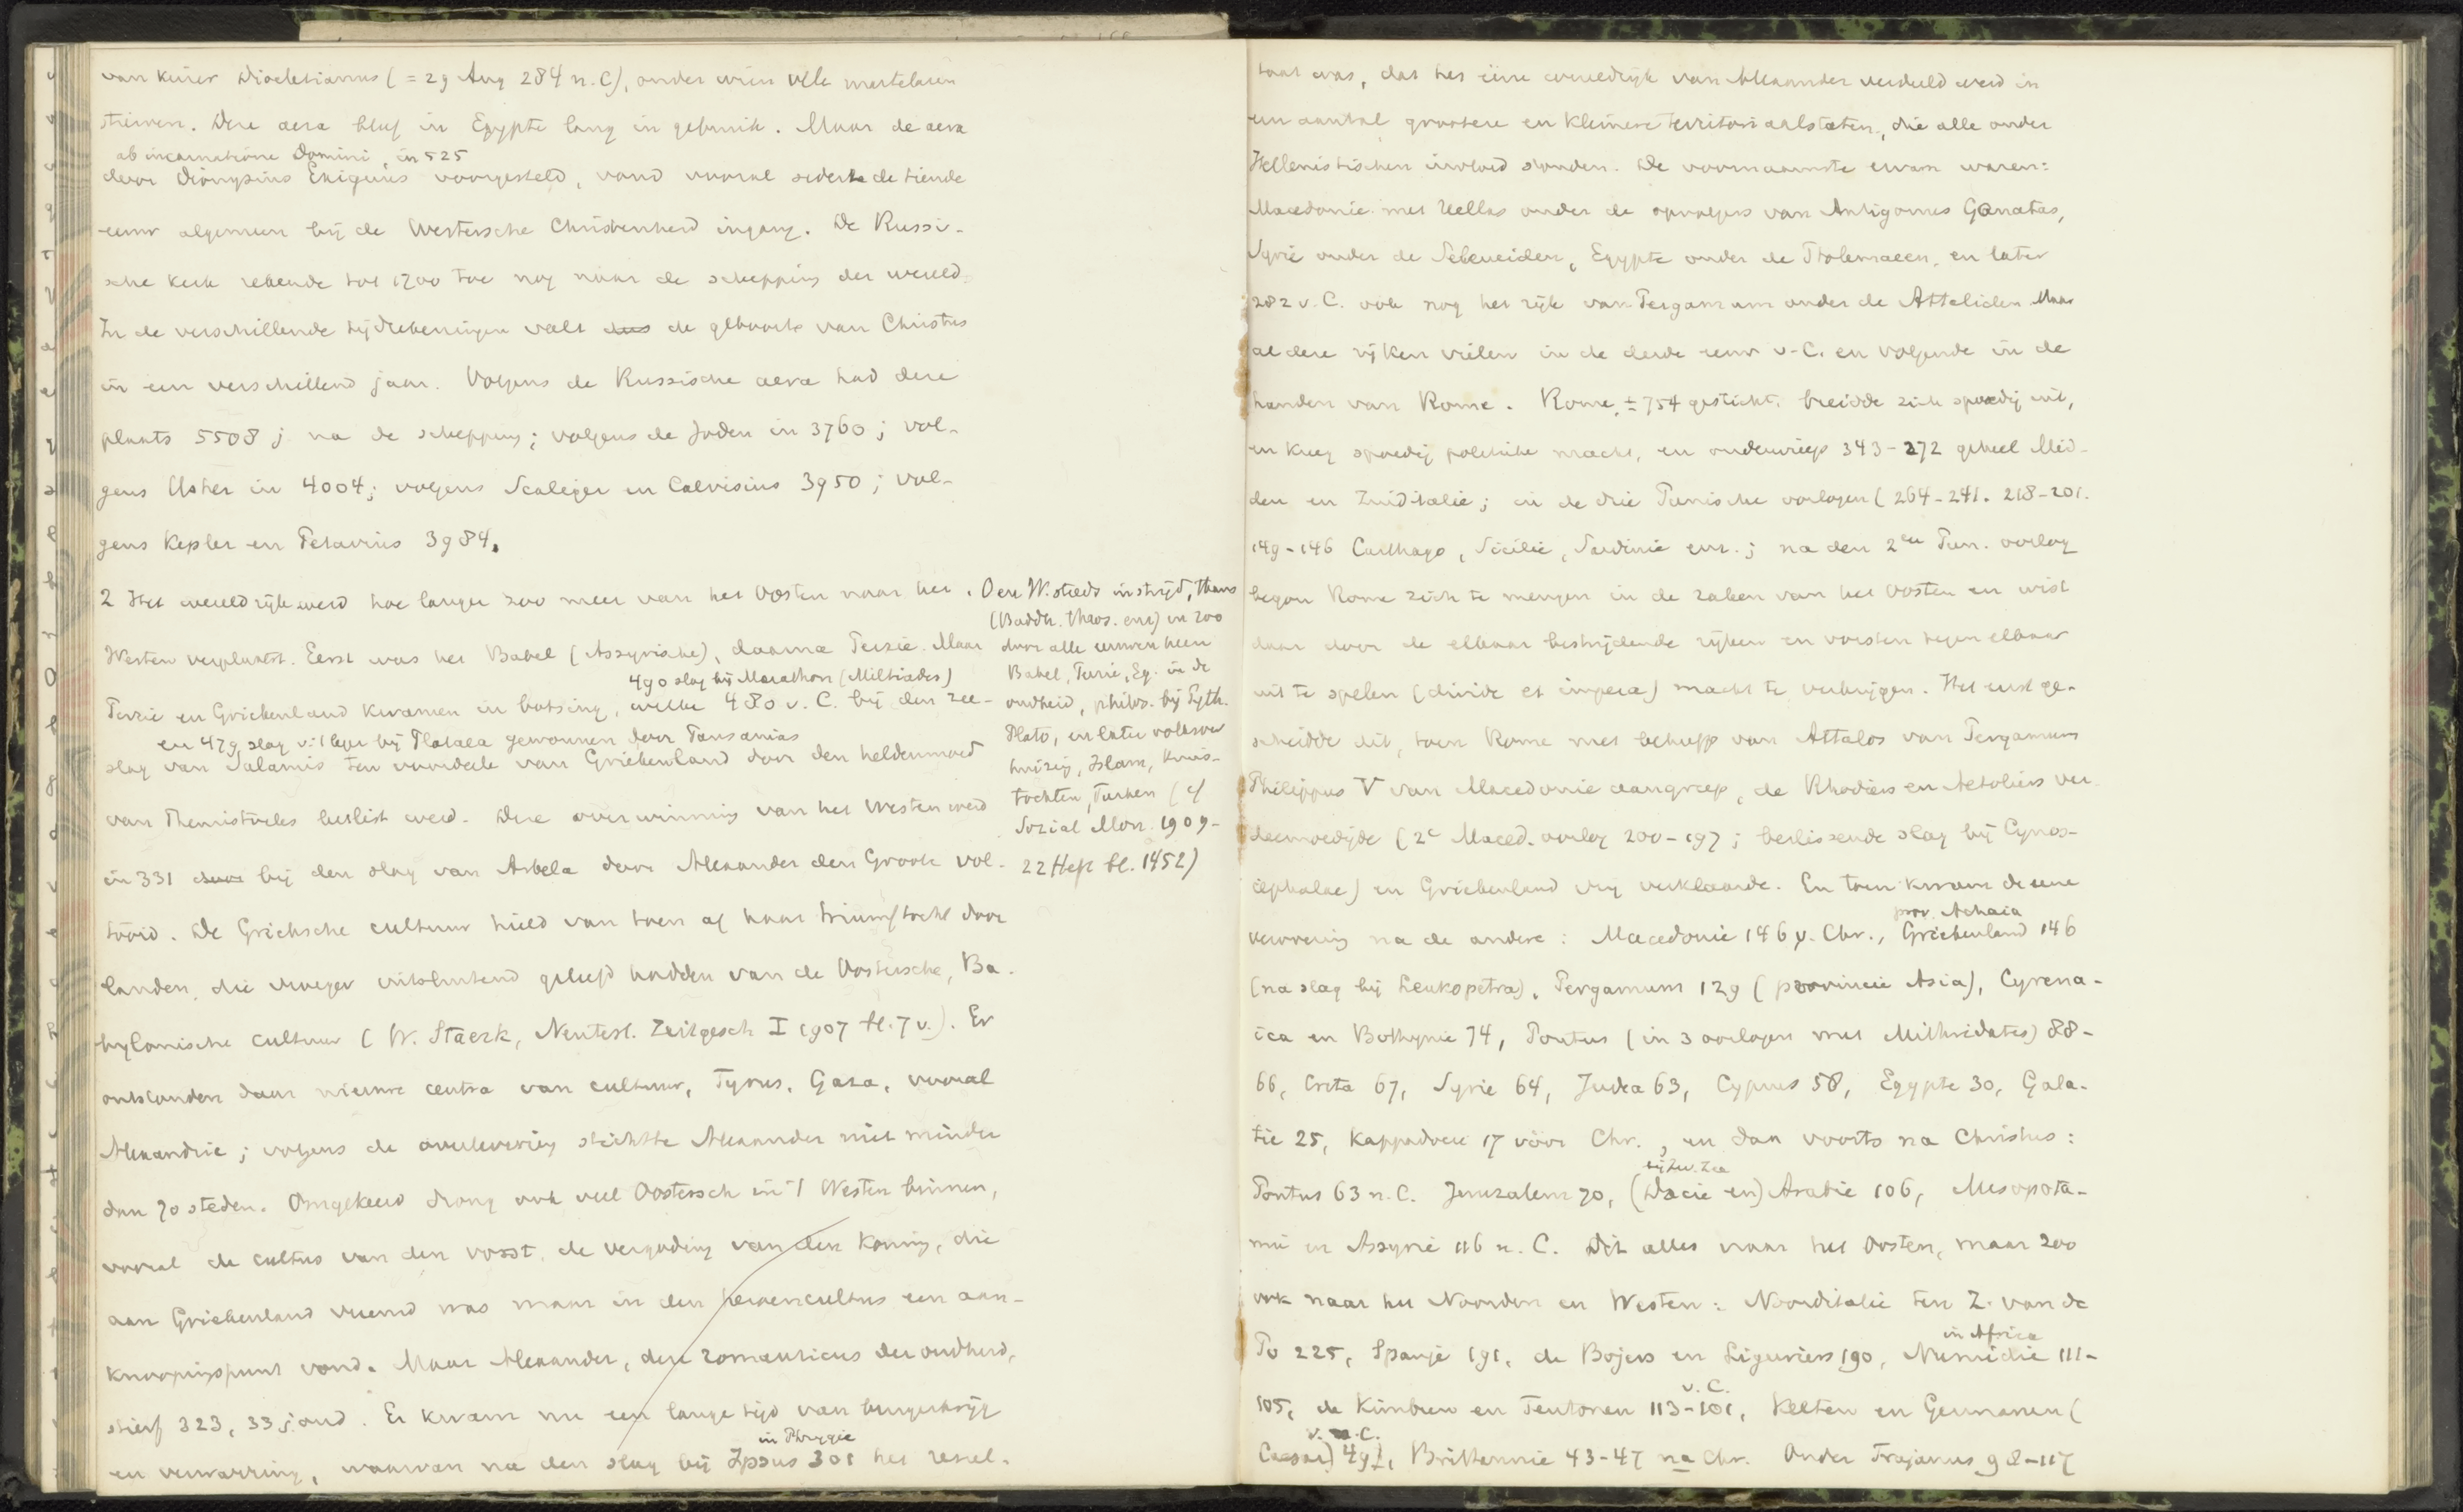 van keizer Diocletianus (= 29 Aug 284 n. C), onder wien vele martelaren
stierven. Deze aera bleef in Egypte lang in gebruik. Maar de aera
ab incarnatione Domini, in 525
door Dionysius Exiguus voorgesteld, vond vooral sedert de tiende
eeuw algemeen bij de Westersche Christenheid ingang. De Russi-
sche kerk rekende tot 1700 toe nog naar de schepping der wereld.
In de verschillende tijdrekeningen valt dus de geboorte van Christus
in een verschillend jaar. Volgens de Russische aera had deze
plaats 5508 j na de schepping; volgens de Joden in 3760; vol-
gens Usher in 4004; volgens Scaliger en Calvisius 3950; vol-
gens Kepler en Petavius 3984.
2 Het wereldrijk werd hoe langer zoo meer van het Oosten naar het
Westen verplaatst. Eerst was het Babel (Assyrische), daarna Perzie. Maar
490 slag bij Marathon (Miltiades)
Perzie en Griekenland kwamen in botsing, welke 480 v. C. bij den zee-
en 479 slag v. 't leger bij Plataea gewonnen door Pausanias
slag van Salamis ten voordeele van Griekenland door den heldenmoed
van Themistocles beslist werd. Deze overwinning van het Westen werd
in 331 door bij den slag van Arbela door Alexander den Groote vol-
tooid. De Grieksche cultuur hield van toen af haar triumftocht door
landen, die vroeger uitsluitend geleefd hadden van de Oostersche, Ba-
bylonische cultuur (W. Staerk, Neutest. Zeitgesch I 1907 bl. 7 v.). Er
ontstonden daar nieuwe centra van cultuur, Tyrus, Gaza, vooral
Alexandrie; volgens de overlevering stichtte Alexander niet minder
dan 70 steden. Omgekeerd drong ook veel Oostersch in 't Westen binnen,
vooral de cultus van den vorst, de vergoding van den koning, die
aan Griekenland vreemd was maar in den heroencultus een aan-
knoopingspunt vond. Maar Alexander, deze romanticus der oudheid,
stierf 323, 33 j. oud. Er kwam nu een lange tijd van burgerkrijg
in Phrygie
en verwarring, waarvan na den slag bij Ipsus 301 het resul-
O en W. steeds in strijd, thans
(Buddh. thaos. enz) en zoo
door alle eeuwen heen
Babel, Perzie, Eg. in de
oudheid, philos. bij Pyth.
Plato, en later volksver
huizing, Islam, Kruis-
tochten, Turken (cf
Sozial Mon. 1909-
22 Heft bl. 1452)
taat was, dat het eene wereldrijk van Alexander verdeeld werd in
een aantal grootere en kleinere territoriaalstaten, die alle onder
Hellenistischen invloed stonden. De voornaamste ervan waren:
Macedonie met Hellas onder de opvolgers van Antigonus Gonatas,
Syrie onder de Seleuciden, Egypte onder de Ptolemaeen, en later
282 v. C. ook nog het rijk van Pergamum onder de Attaliden. Maar
al deze rijken vielen in de derde eeuw v. C. en volgende in de
handen van Rome. Rome, ± 754 gesticht, breidde zich spoedig uit,
en kreeg spoedig politieke macht, en onderwierp 343-272 geheel Mid-
den en Zuiditalie; in de drie Punische oorlogen (264-241. 218-201.
149-146 Carthago, Sicilie, Sardinie enz.; na den 2en Pun. oorlog
begon Rome zich te mengen in de zaken van het Oosten en wist
daar door de elkaar bestrijdende rijken en vorsten tegen elkaar
uit te spelen (divide et impera) macht te verkrijgen. Het eerst ge-
scheidde dit, toen Rome met behulp van Attalos van Pergamum
Philippus V van Macedonie aangreep, de Rhodiers en Aetoliers ver-
deemoedigde (2e Maced. oorlog 200-197; beslissende slag bij Cynos-
cephalae) en Griekenland vrij verklaarde. En toen kwam de eene
prov. Achaia
verovering na de andere: Macedonie 146 v. Chr., Griekenland 146
(na slag bij Leukopetra), Pergamum 129 (provincie Asia), Cyrena-
ica en Bithynie 74, Pontus (in 3 oorlogen met Mithridates) 88-
66, Creta 67, Syrie 64, Judea 63, Cyprus 58, Egypte 30, Gala-
tie 25, Kappadocie 17 vóór Chr., en dan voorts na Christus:
bij Zw. Zee
Pontus 63 n. C. Jeruzalem 70, (Dacie en) Arabie 106, Mesopota-
mie en Assyrie 116 n. C. Dit alles naar het Oosten, maar zoo
ook naar het Noorden en Westen: Noorditalie ten Z. van de
in Africa
Po 225, Spanje 191, de Bojers en Liguriers 190, Numidie 111-
v. C.
105, de Kimbren en Teutonen 113-101, Kelten en Germanen (
v. C.
Caesar) 49, Brittannie 43-47 na Chr. Onder Trajanus 98-117